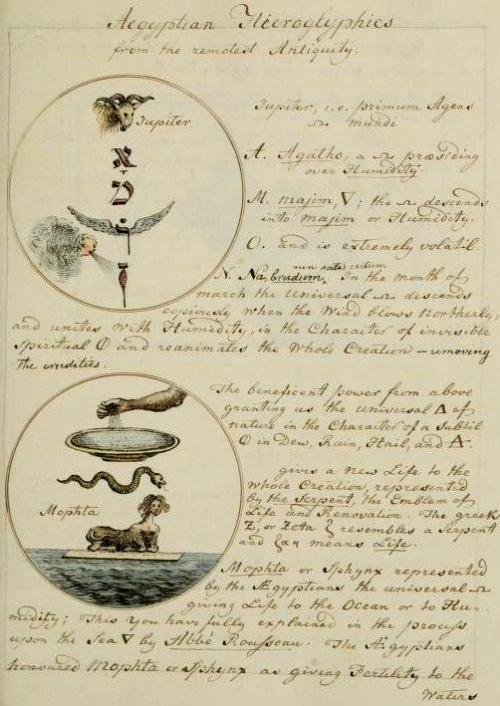 Aegyptian Hieroglyphics
from the remotest Antiquity.
Jupiter
Jupiter, i.e. primum Agens
mundi
A. Agatho, a ♎ presiding
over Humidity.
M. majim, 🜄; the ♎ descends
into majim or Humidity.
O. and is extremely volatil.
non satis certum
N. Nabrudum. In the month of
march the Universal ♎ descends
copiously when the Wind blows Northerly,
and unites with Humidity, in the Character of invisible
Spiritual 🜔 and reanimates the Whole Creation – removing
the crudities.
The beneficent power from above
granting us the universal 🜂 of
nature in the Character of a Subtil
🜔 in Dew, Rain, Hail, and 🜁.
gives a New Life to the
whole Creation, represented
by the Serpent, the Emblem of
Life and Renovation. The greek
Z, or Zeta ζ resembles a Serpent
and ζαη means Life.
Mophta
Mophta or Sphynx represented
by the Ægyptians the universal ♎
giving Life to the Ocean or to Hu-
midity; This you have fully explained in the process
upon the Sea 🜄 by Abbé Rousseau. The Ægyptians
honoured Mophta or Sphynx as giving Fertility to the
Waters